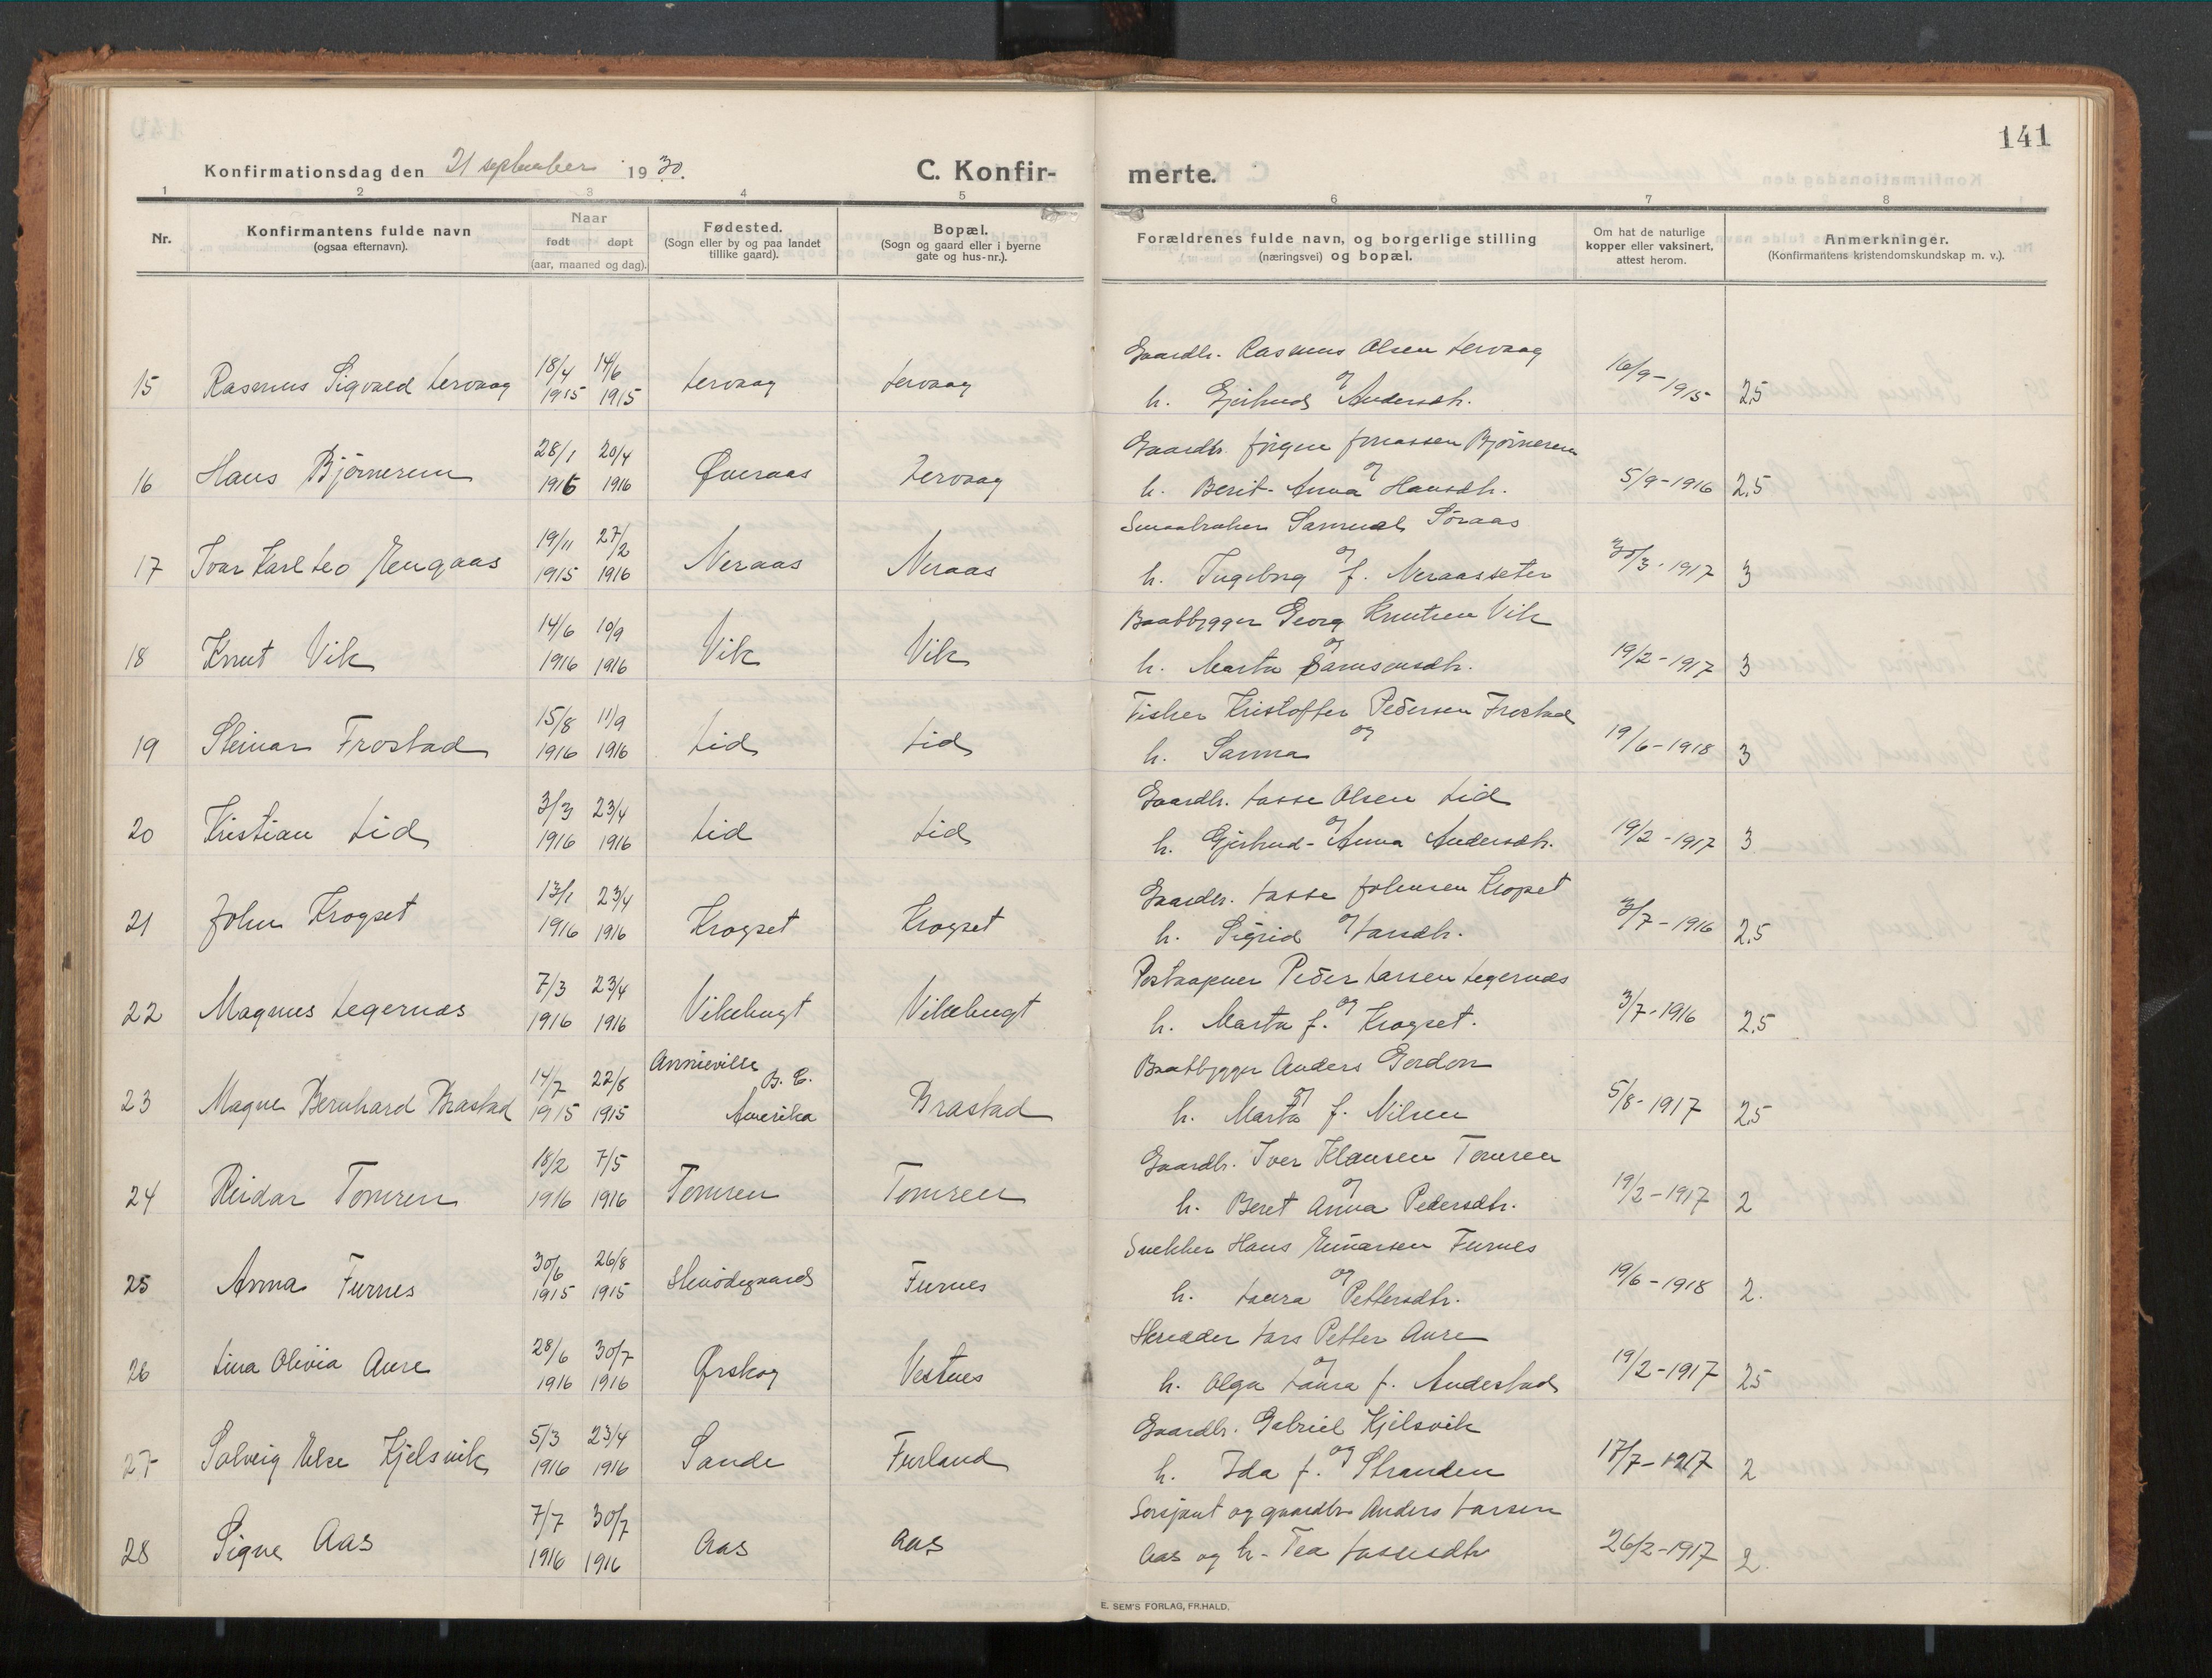 141
Konfirmationsdag den 21 september 1930.
C. Konfirmerte.
1 2 3 4 5 6 7 8
Nr.
Konfirmantens fulde navn
(ogsaa efternavn).
Naar
født døpt
(aar, maaned og dag).
Fødested.
(Sogn eller by og paa landet
tillike gaard).
Bopæl.
(Sogn og gaard eller i byerne
gate og hus-nr.).
Forældrenes fulde navn, og borgerlige stilling
(næringsvei) og bopæl.
Om hat de naturlige
kopper eller vaksinert,
attest herom.
Anmerkninger.
(Konfirmantens kristendomskundskap m. v.).
Gaardbr. Rasmus Olsen Lervaag
18/4 14/6
15 Rasmus Sigvald Lervaag 1915 1915 Lervaag Lervaag og h. Gjertrud Andersdtr. 16/9-1915 2,5
Gaardbr. Jørgen Jonassen Bjørnerem
28/1 20/4
16 Hans Bjørnerem 1916 1916 Øveraas Lervaag og h. Berit-Anna Hansdtr. 5/9-1916 2,5
Smaabruker Samuel Søraas
19/11 27/2
17 Ivar Karl Leo Hengaas 1915 1916 Neraas Neraas og h. Ingeborg f. Neraasseter 30/3-1917 3
Baatbygger Georg Knutsen Vik
14/6 10/9
18 Knut Vik 1916 1916 Vik Vik og h. Marta Samsonsdtr. 19/2-1917 3
Fisker Kristoffer Pedersen Frostad
15/8 11/9
19 Steinar Frostad 1916 1916 Lid Lid og h. Sanna 19/6-1918 3
Gaardbr. Lasse Olsen Lid
3/3 23/4
20 Kristian Lid 1916 1916 Lid Lid og h. Gjertrud-Anna Andersdtr. 19/2-1917 3
Gaardbr. Lasse Johnsen Krogset
13/1 23/4
21 John Krogset 1916 1916 Krogset Krogset og h. Sigrid Larsdtr. 3/7-1916 2,5
Postaapner Peder Larsen Legernæs
7/3 23/4
22 Magnus Legernæs 1916 1916 Vikebugt Vikebugt og h. Marta f. Krogset. 3/7-1916 2,5
Baatbygger Anders Gordon
14/7 22/8 Annieville B. C.
23 Magne Bernhard Brastad 1915 1915 Amerika Brastad og h. Marta f. Nilsen 5/8-1917 2,5
Gaardbr. Iver Klausen Tomren
18/2 7/5
24 Reidar Tomren 1916 1916 Tomren Tomren og h. Beret Anna Pedersdtr. 19/2-1917 2
Snekker Hans Einarsen Furnes
30/6 26/8
25 Anna Furnes 1915 1915 Furnes og h. Laura Pettersdtr. 19/6-1918 2.
Skredder Lars Petter Aure
28/6 30/7
26 Lina Olivia Aure 1916 1916 Ørskog Vestnes og h. Olga Laura f. Andestad 19/2-1917 25
Gaardbr. Gabriel Kjelsvik
5/3 23/4
27 Solveig Else Kjelsvik 1916 1916 Sande Furland og h. Ida f. Stranden 17/7-1917 2
Sersjant og gaardbr. Anders Larsen
7/7 30/7
28 Signe Aas 1916 1916 Aas Aas Aas og h. Tea Lassesdtr 26/2-1917 2.
E. SEM'S FORLAG, FR.HALD.